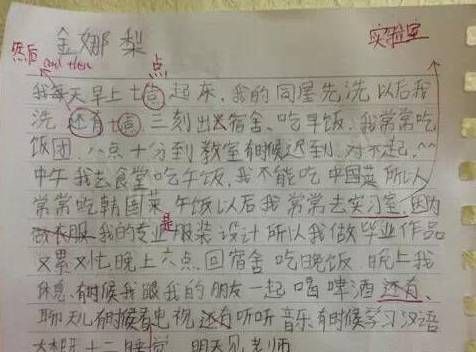 金娜梨
实验室
然后 and then
点
我每天早上七点起床，我的同屋先洗以后我
洗，还有七点三刻出去宿舍、吃早饭，我常常吃
饭团，八点十分到教室有时候迟到，对不起，^^
中午我去食堂吃午饭，我不能吃中国菜所以
常常吃韩国菜 午饭以后我常常去实习室，因为
做衣服我的专业是服装设计所以我做毕业作品
又累又忙晚上六点回宿舍吃晚饭，晚上我
休息，有时候我跟我的朋友一起喝啤酒还有，
聊天儿有时候看电视还有听听音乐有时候学习汉语
十二 睡觉，明天见老师